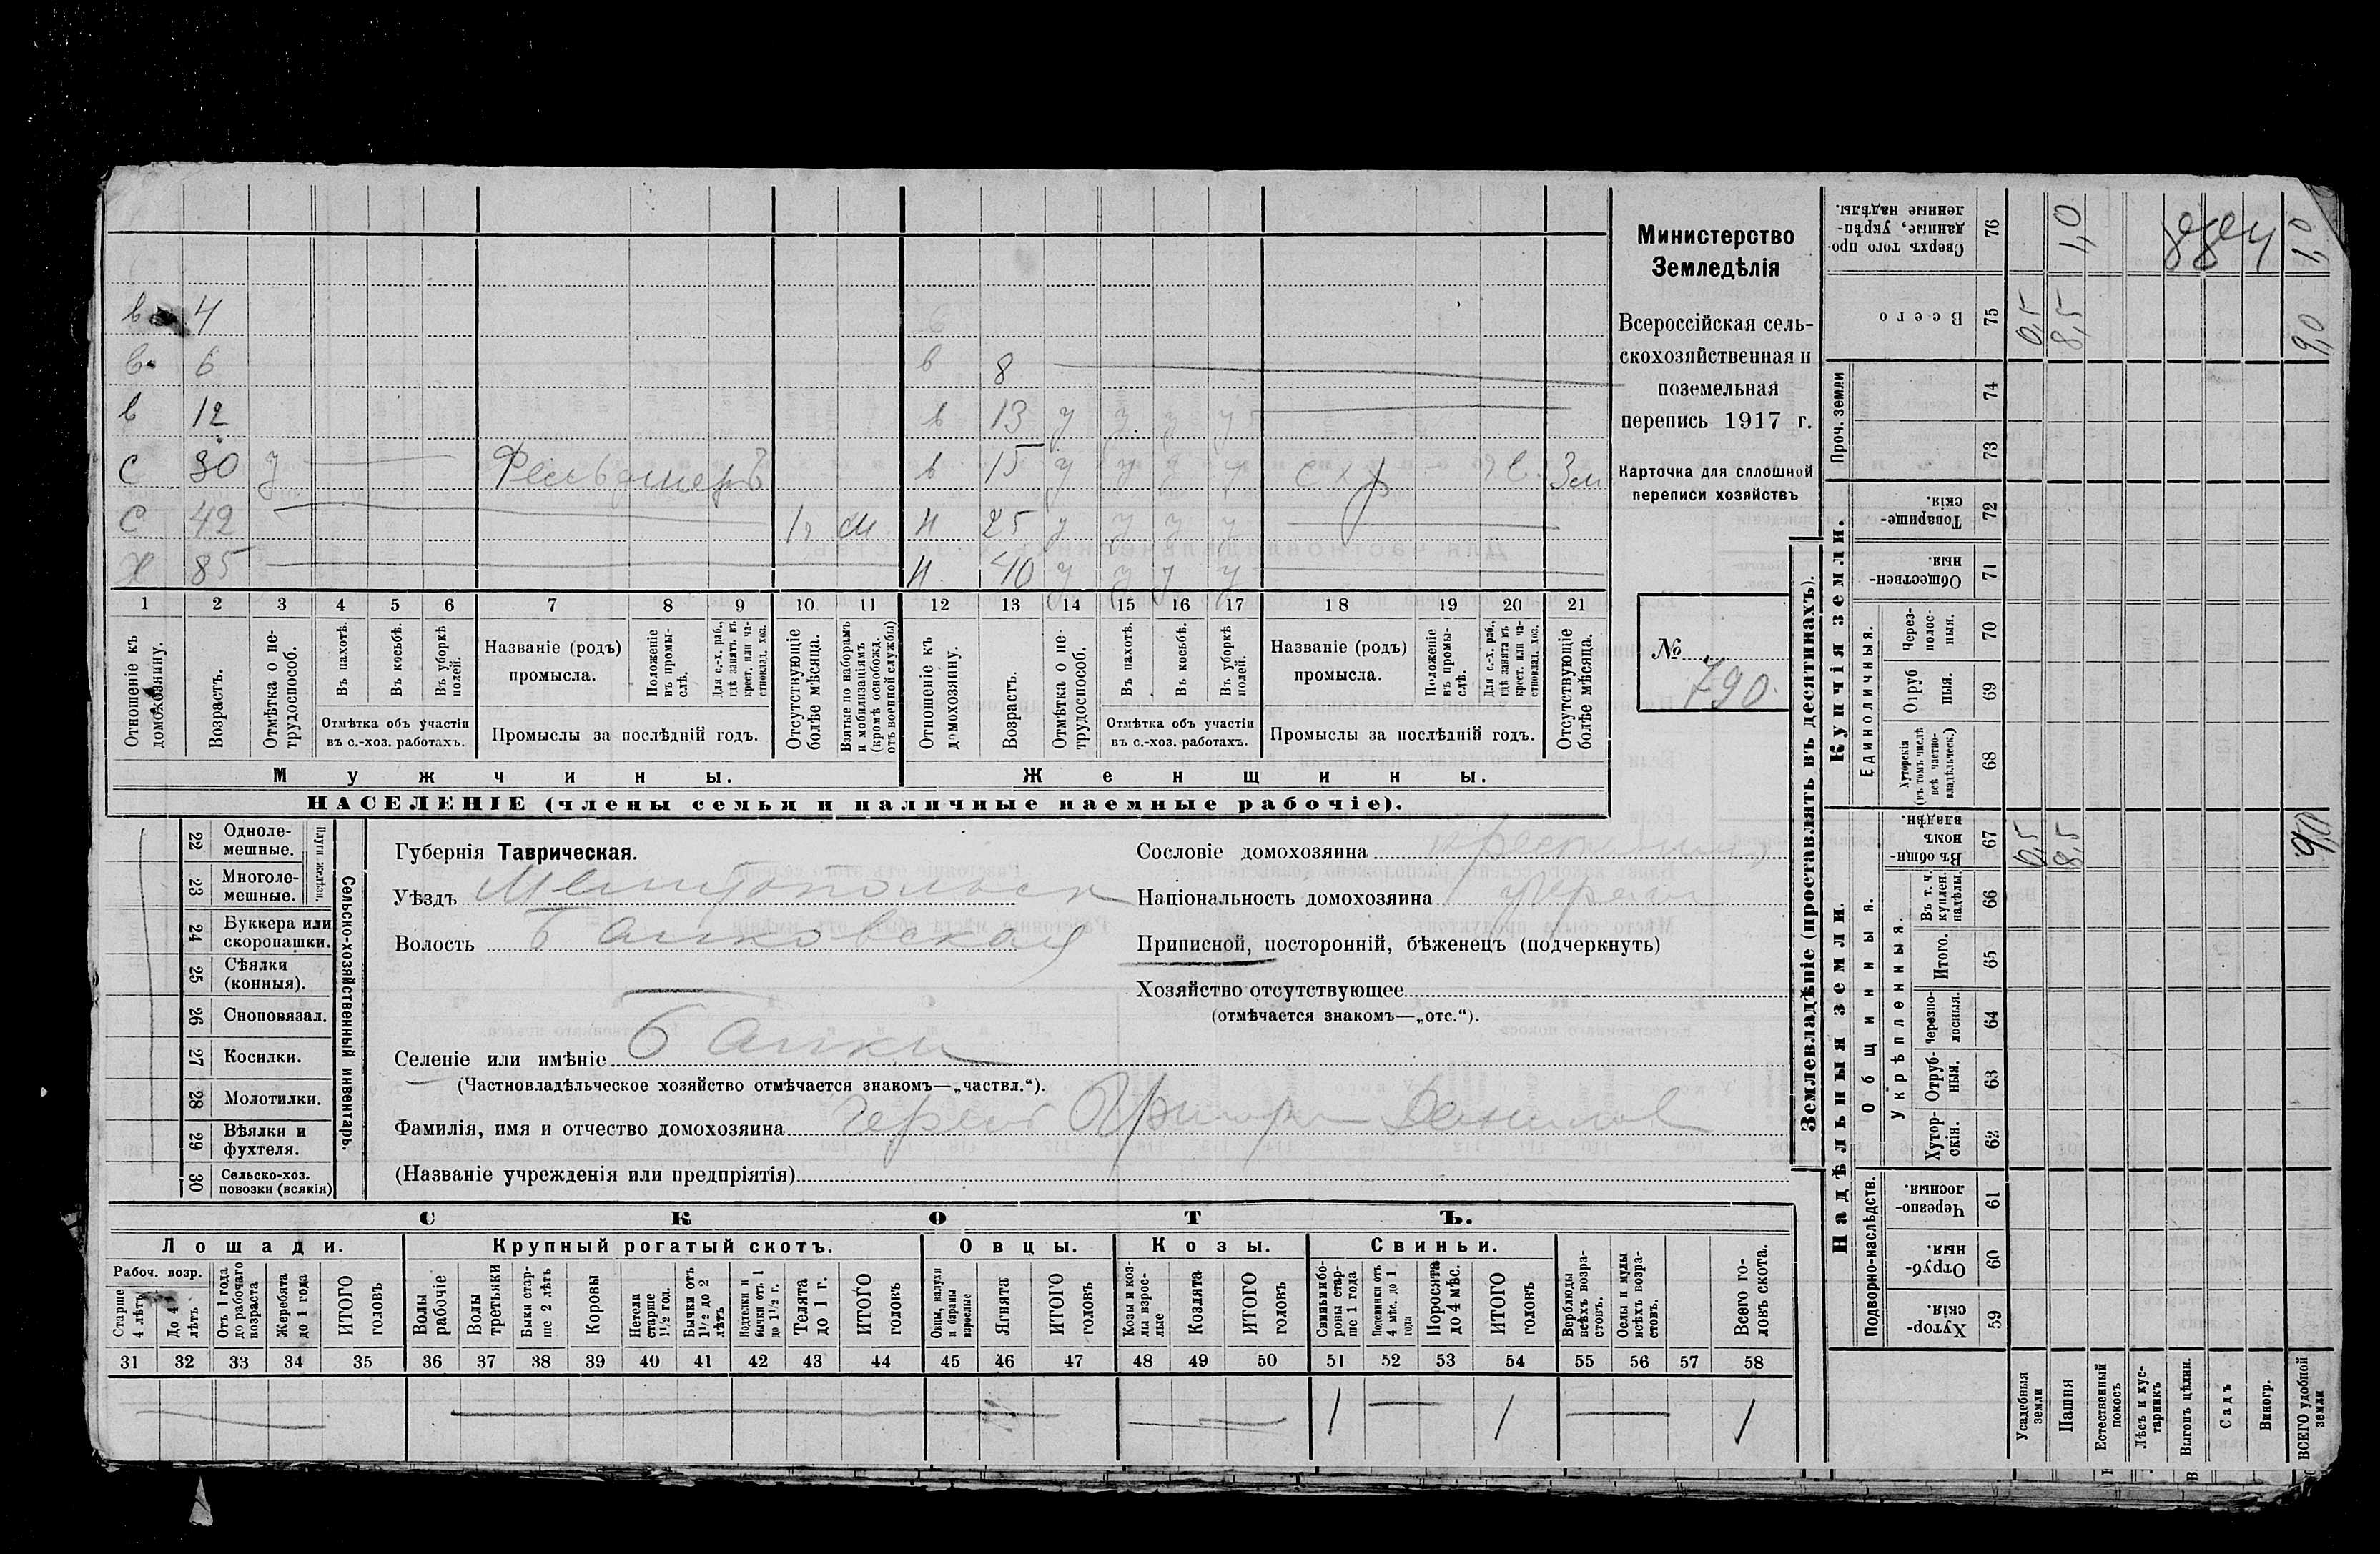 в 4
в 6 в 8
в 12 в 13 у у у у
С 30 у Фельдшеръ в 15 у у у у с х р
С 42 1 г М. Н 25 у у у у
Х 85 Н 40 у у у у
1 2 3 4 5 6 7 8 9 10 11 12 13 14 15 16 17 18 19 20 21
Отношеніе къ домохозяину.
Возрастъ.
Отмѣтка о нетрудоспособ.
Въ пахотѣ.
Въ косьбѣ.
Въ уборкѣ полей.
Отмѣтка объ участіи
въ с.-хоз. работахъ.
Названіе (родъ)
промысла.
Положеніе въ промыслѣ.
Для с.-х. раб., гдѣ занятъ въ крест. или частновлад. хоз.
Промыслы за послѣдній годъ.
Отсутствующіе болѣе мѣсяца.
Взятые по наборамъ и мобилизаціямъ (кромѣ освобожд. отъ военной службы)
Отношеніе къ домохозяину.
Возрастъ.
Отмѣтка о нетрудоспособ.
Въ пахотѣ.
Въ косьбѣ.
Въ уборкѣ полей.
Отмѣтка объ участіи
въ с.-хоз. работахъ.
Названіе (родъ)
промысла.
Положеніе въ промыслѣ.
Для с.-х. раб., гдѣ занята въ крест. или частновлад. хоз.
Промыслы за послѣдній годъ.
Отсутствующіе болѣе мѣсяца.
Мужчины. Женщины.
НАСЕЛЕНІЕ (члены семьи и наличные наемные рабочіе).
Министерство
Земледѣлія
Всероссійская сель-
скохозяйственная и
поземельная
перепись 1917 г.
Карточка для сплошной
переписи хозяйствъ
№
790
22 Одноле-
мешные.
23 Многоле-
мешные.
Плуги желѣзн.
24 Буккера или
скоропашки.
25 Сѣялки
(конныя).
26 Сноповязал.
27 Косилки.
28 Молотилки.
29 Вѣялки и
фухтеля.
30 Сельско-хоз.
повозки (всякія)
Сельско-хозяйственный инвентарь.
Губернія Таврическая.
Уѣздъ Мелитопольск
Волость Балковская
Селеніе или имѣніе Балки
(Частновладѣльческое хозяйство отмѣчается знакомъ—„частвл.“).
Фамилія, имя и отчество домохозяина
(Названіе учрежденія или предпріятія)
Сословіе домохозяина крестьянин
Національность домохозяина
Приписной, посторонній, бѣженецъ (подчеркнуть)
Хозяйство отсутствующее
(отмѣчается знакомъ—„отс.“).
СКОТЪ.
Лошади. Крупный рогатый скотъ. Овцы. Козы. Свиньи.
Рабоч. возр.
Старше 4 лѣтъ
До 4 лѣтъ
Отъ 1 года до рабочаго возраста
Жеребята до 1 года
ИТОГО головъ
Волы рабочіе
Волы третьяки
Быки старше 2 лѣтъ
Коровы
Нетели старше 1 1/2 год.
Бычки отъ 1 1/2 до 2 лѣтъ
Подтелки и бычки отъ 1 до 1 1/2 г.
Телята до 1 г.
ИТОГО головъ
Овцы, валухи и бараны взрослые
Ягнята
ИТОГО головъ
Козы и козлы взрослые
Козлята
ИТОГО головъ
Свиньи и боровы старше 1 года
Подсвинки отъ 4 мѣс. до 1 года
Поросята до 4 мѣс.
ИТОГО головъ
Верблюды всѣхъ возрастовъ.
Ослы и мулы всѣхъ возрастовъ.
Всего головъ скота.
31 32 33 34 35 36 37 38 39 40 41 42 43 44 45 46 47 48 49 50 51 52 53 54 55 56 57 58
1 1 1
Землевладѣніе (проставлять въ десятинахъ).
Надѣльныя земли. Купчія земли. Проч. земли
Подворно-наслѣдств.
Общинныя.
Укрѣпленныя.
Единоличныя.
Хутор-
скія. 59
Отруб-
ныя. 60
Черезпо-
лосныя. 61
Хутор-
скія. 62
Отруб-
ныя. 63
Черезпо-
лосныя. 64
Итого. 65
Въ т. ч. куплен. надѣлы. 66
Въ общин-
номъ владѣн. 67
Хуторскія (въ томъ числѣ всѣ частновладѣльческ.) 68
Отруб
ныя. 69
Через-
полос-
ныя. 70
Обществен-
ныя 71
Товарище-
скія. 72
73
74
Всего 75
Сверхъ того про-
данные, укрѣп-
ленные надѣлы. 76
Усадебныя земли 0,5 0,5
Пашня 8,5 8,5 1,0
Естественный покосъ
Лѣсъ и кустарникъ
Выгонъ цѣлин.
Садъ
Виногр.
ВСЕГО удобной земли 9,0 9,0 1,0